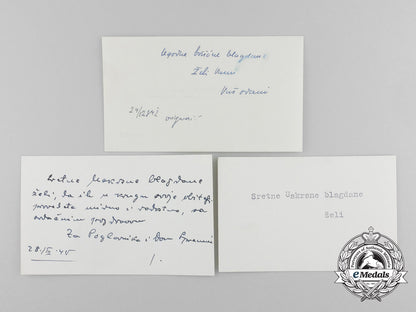 Ugodne božićne blagdane
želi Vam
Vaš odani
Sretne Uskrsne blagdane
želi, da ih u krugu svoje obitelji
provedete mirno i radostno, sa
srdačnim pozdravom
Za Poglavnika i Dom Spremni
28/III 45
Sretne Uskrsne blagdane
želi
eMedals